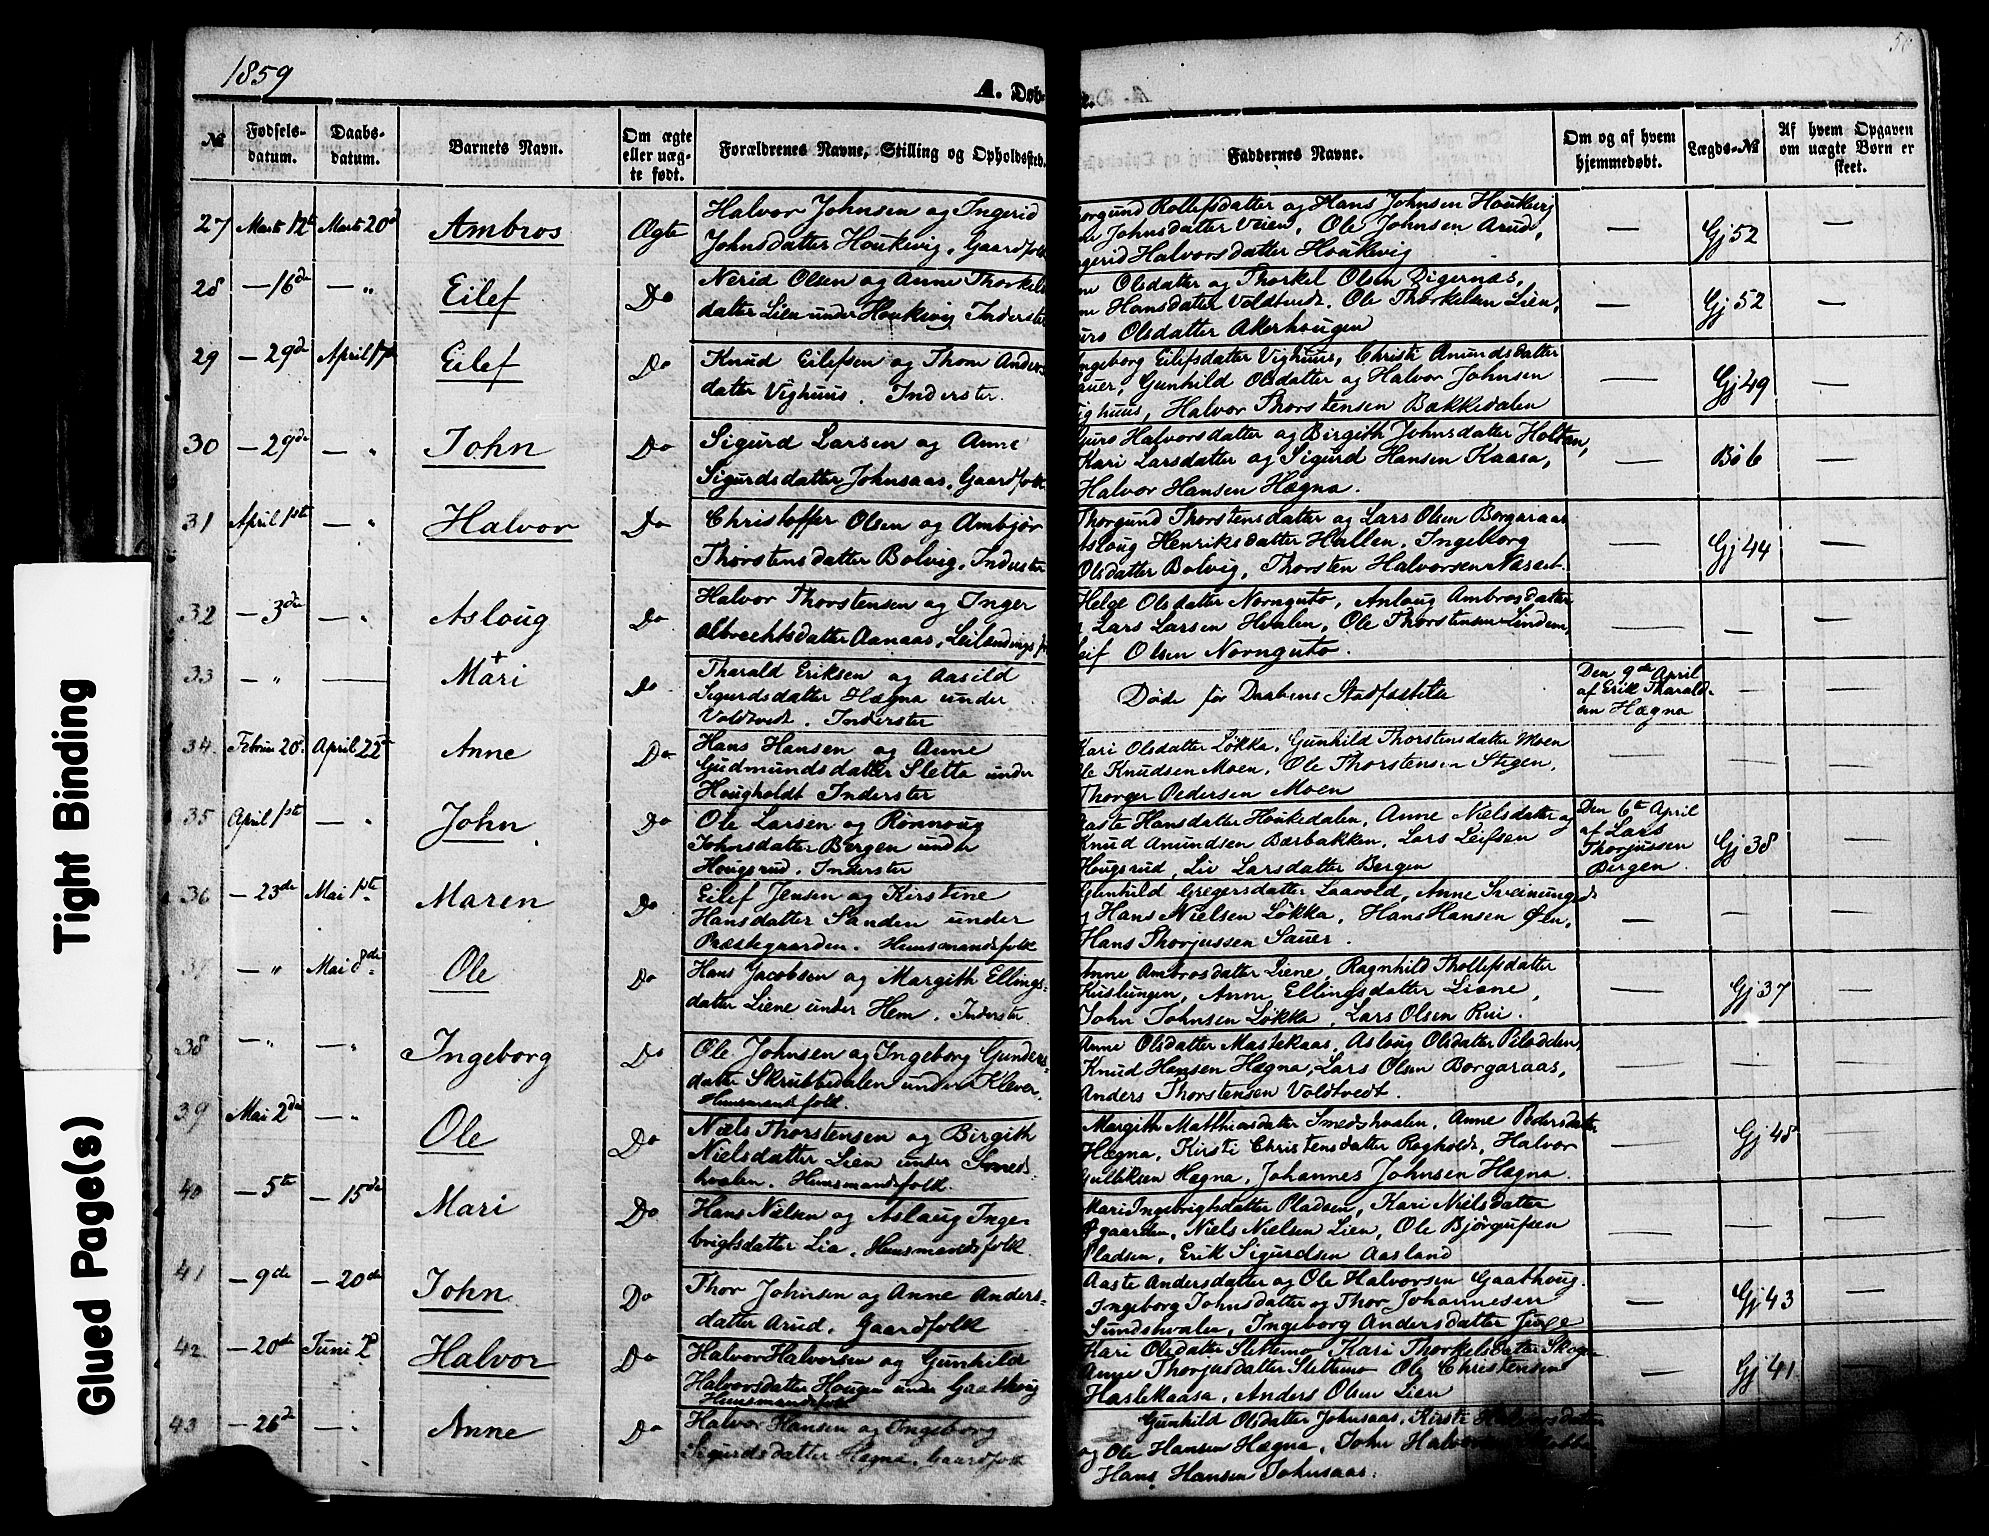 1859
A. Døb-
№
Fødsels-
datum.
Daabs-
datum.
Barnets Navn.
Om ægte
eller uæg-
te født.
Forældrenes Navne, Stilling og Opholdssted.
Faddernes Navne.
Om og af hvem
hjemmedøbt.
Lægds-№
Af hvem Opgaven
om uægte Børn er
skeet.
27 Marts 12te Marts 20d Ambros Ægte
Halvor Johnsen og Ingerid
Johnsdatter Houkevig, Gaardfolk
Rollefsdatter og Hans Johnsen Houkevig
Johnsdatter Veien, Ole Johnsen Arud,
Halvorsdatter Houkevig
— Gj 52 —
28 — 16de — " Eilef Do
Nerid Olsen og Anne Thorkels
datter Lien under Houkevig Inderster
Olsdatter og Thorkel Olsen Digernæs,
Hansdatter Voldtvedt. Ole Thorkelsen Lien,
Olsdatter Akerhougen
— Gj 52 —
29 — 29de April 17de Eilef Do
Knud Eilefsen og Thone Anders
datter Vighuus. Inderster.
Ingeborg Eilefsdatter Vighuus, Christi Amundsdatter
Sauer, Gunhild Olsdatter og Halvor Johnsen
Vighuus, Halvor Thorstensen Bakkedalen
— Gj 49 —
30 — 29de — " John Do
Sigurd Larsen og Anne
Sigurdsdatter Johnsaas, Gaardfolk
Guro Halvorsdatter og Birgith Johnsdatter Holtan,
Kari Larsdatter og Sigurd Hansen Kaasa,
Halvor Hansen Hægna.
— Bø 6 —
31 April 1ste — " Halvor Do
Christoffer Olsen og Ambjør
Thorstensdatter Bolvig, Inderster
Thorgund Thorstensdatter og Lars Olsen Borgaraas
Asloug Henriksdatter Hallen, Ingeborg
Olsdatter Bolvig, Thorsten Halvorsen
— Gj 44 —
32 — 3de — " Asloug Do
Halvor Thorstensen og Inger
Albrechtsdatter Aanaas, Leilændings
Helge Olsdatter Nornguto, Asloug Ambrosdatter
Lars Larsen Hvalen, Ole Thorstensen Lindem,
Leif Olsen Nornguto.
— — —
33 — " — + Mari Do
Tharald Eriksen og Aasild
Sigurdsdatter Hægna under
Voldtvedt. Inderster
Døde før Daabens Stadfæstelse
Den 9de April
af Erik Tharald-
sen Hægna
— —
34 Februar 20 April 22de Anne Do
Hans Hansen og Anne
Gudmundsdatter Sletta under
Hougholdt Inderster
Kari Olsdatter Løkka, Gunhild Thorstensdatter Moen
Ole Knudsen Moen, Ole Thorstensen Stigen,
Thorger Pedersen Moen
— — —
35 April 1ste — " John Do
Ole Larsen og Rønnoug
Johnsdatter Bergen under
Hougsrud, Inderster
Aaste Hansdatter Houkedalen, Anne Nielsdatter og
Knud Amundsen Bærbakken, Lars Leifsen
Hougsrud, Liv Larsdatter Bergen
Den 6te April
af Lars
Thorjussen
Bergen
Gj 38 —
36 — 23de Mai 1ste Maren Do
Eilef Jensen og Kirstine
Hansdatter Sanden under
Præstegaarden. Huusmandsfolk
Gunhild Gregersdatter Laavold, Anne Sveinungsd
Hans Nielsen Løkka, Hans Hansen Øen,
Hans Thorjussen Sauer.
— — —
37 — " Mai 8de Ole Do
Hans Jacobsen og Margith Ellings-
datter Liene under Hem. Inderster
Anne Ambrosdatter Liene, Ragnhild Thollefsdatter
Anne Ellingsdatter Liene,
John Johnsen Løkka, Lars Olsen Rui.
— Gj 37 —
38 — " — " Ingeborg Do
Ole Johnsen og Ingeborg Gunders-
datter Skrubbedalen under Klever.
Huusmandsfolk.
Anne Olsdatter Mastekaas, Asloug Olsdatter Pilodden,
Knud Hansen Hægna, Lars Olsen Borgaraas,
Anders Thorstensen Voldtvedt.
— — —
39 Mai 2den — " Ole Do
Niels Thorstensen og Birgith
Nielsdatter Lien under Smeds-
hvalen. Huusmandsfolk.
Margith Matthiasdatter Smedshvalen, Anne Pedersdatter
Hægna, Kirsti Christensdatter Rogholdt, Halvor
Gulleksen Hægna, Johannes Johnsen Hægna.
— Gj 48 —
40 — 5te — 15de Mari Do
Hans Nielsen og Aslaug Inge-
brigtsdatter Lia, Huusmandsfolk.
Mari Ingebrigtsdatter Pladsen, Kari Nielsdatter
Øgaarden, Niels Nielsen Lien, Ole Bjørgufsen
Pladsen, Erik Sigurdsen Aasland
— — —
41 — 9de — 20de John Do
Thor Johnsen og Anne Anders-
datter Arud. Gaardfolk
Aaste Andersdatter og Ole Halvorsen Gaathoug.
Ingeborg Johnsdatter og Thor Johannesen
Sundshvalen, Ingeborg Andersdatter
— Gj 43 —
42 — 20de Juni 2d Halvor Do
Halvor Halvorsen og Gunhild
Halvorsdatter Hougen under Gaathoug
Huusmandsfolk
Kari Olsdatter Slettemo Kari Thorkelsdatter Skogen
Anne Thorjusdatter Slettemo Ole Christensen
Haslekaasa, Anders Olsen Lien
— Gj 41 —
43 — 26d — " Anne Do
Halvor Hansen og Ingeborg
Sigurdsdatter Hægna, Gaardfolk
Gunhild Olsdatter Johnsaas, Kirsti Halvorsdatter
og Ole Hansen Hægna, John Halvorsen
Hans Hansen Johnsaas.
Tight Binding
Glued Page(s)